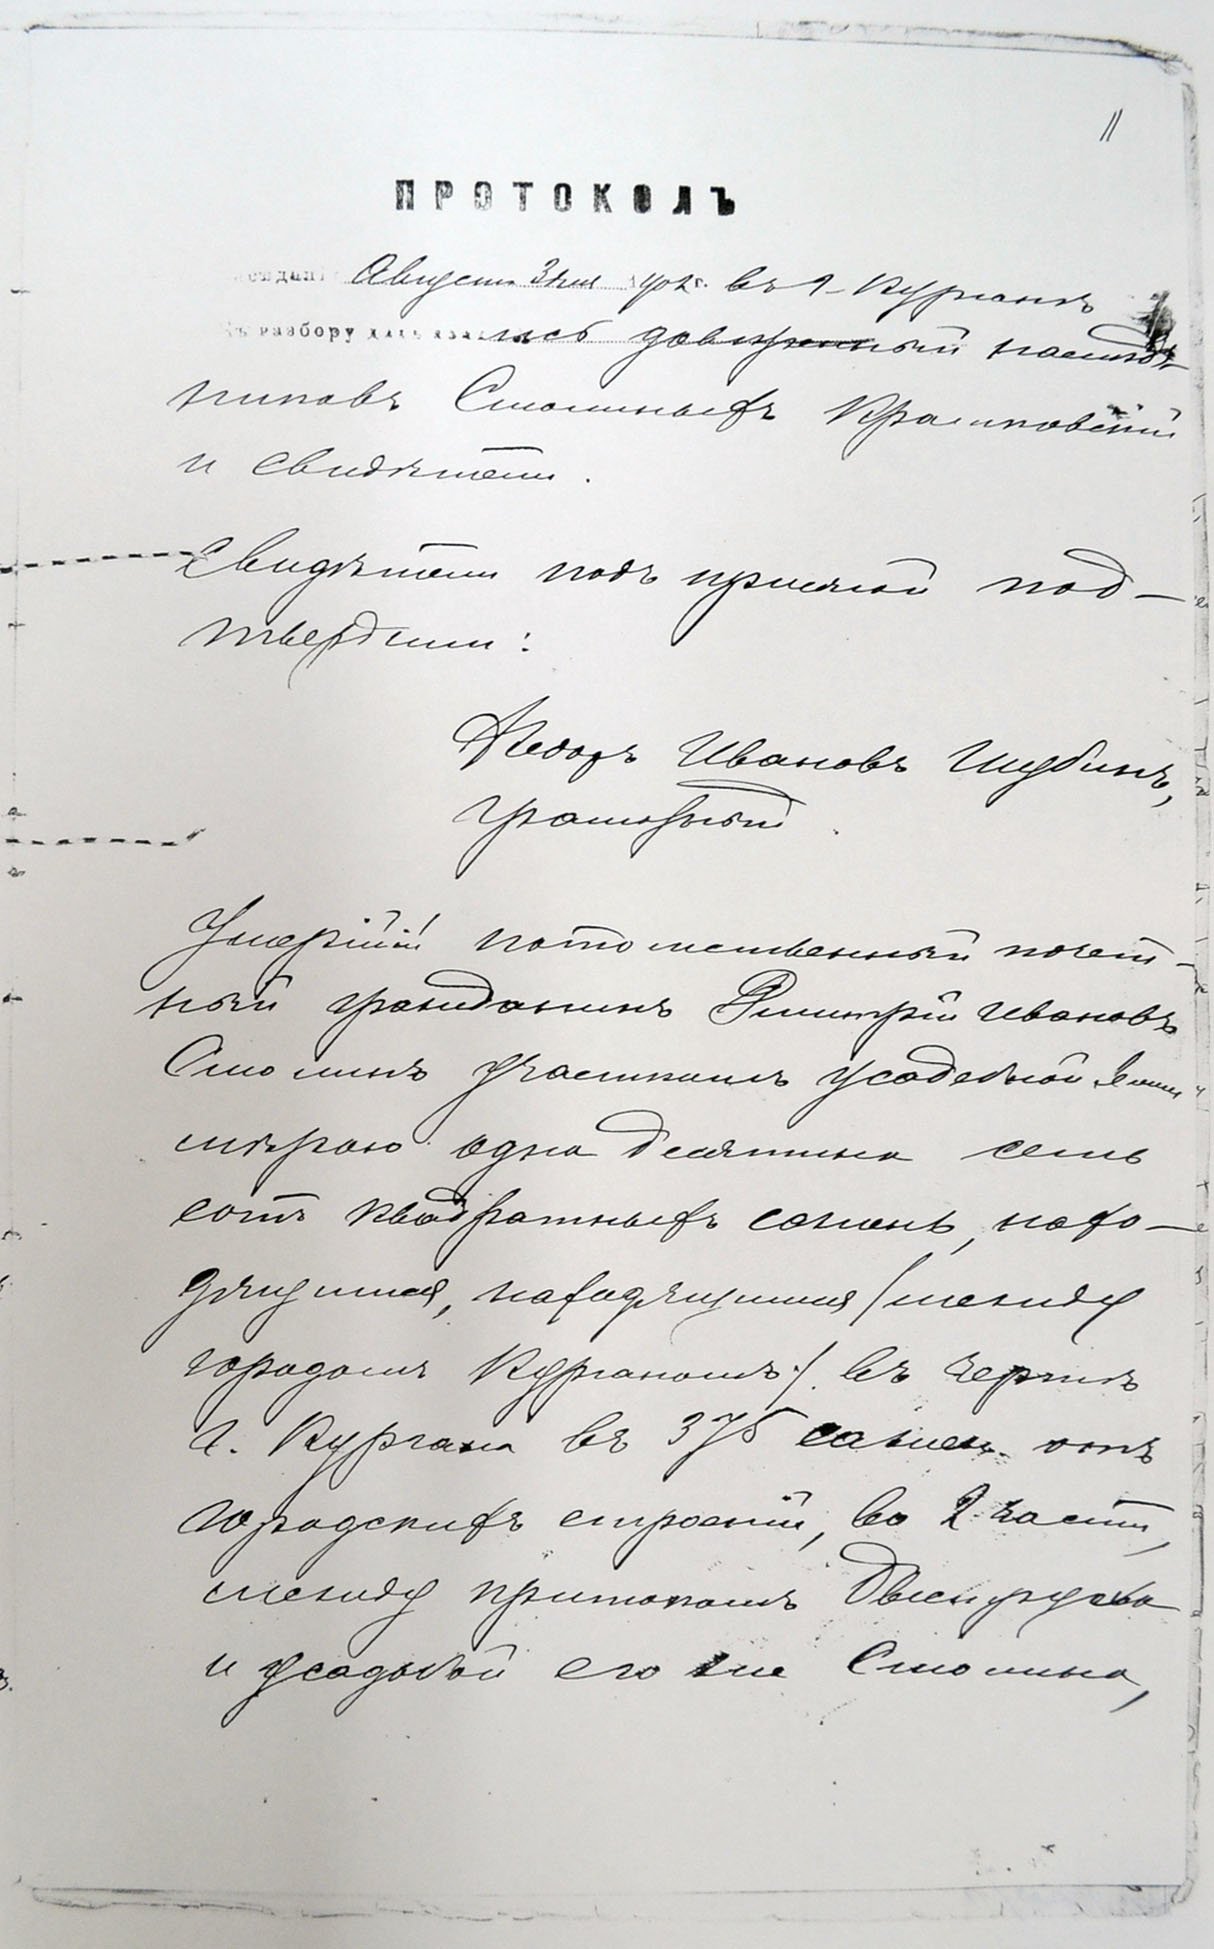 11
ПРОТОКОЛЪ
Августа 3 дня 1902 г. въ г. Курганѣ
къ разбору дѣла явились довѣренный наслѣд-
никовъ Смолиныхъ
и свидѣтели.
Свидѣтели подъ присягой под-
твердили:
Ѳедоръ Ивановъ Шубинъ,
грамотный.
Умершій потомственный почет-
ный гражданинъ Дмитрій Ивановъ
Смолинъ участкомъ усадебной земли
мѣрою одна десятина семь
сотъ квадратныхъ сажень, нахо-
дящимся, находящимся /между
городомъ Курганомъ/. въ чертѣ
г. Кургана въ 375 сажен. отъ
городскихъ строеній, во 2 части,
между притокомъ
и усадьбой его же Смолина,